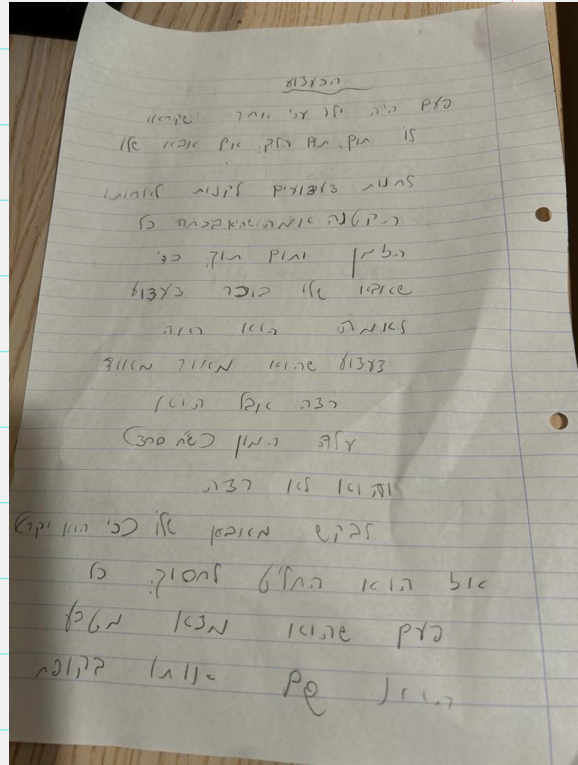 הצעצוע
פעם היה ילד עני אחד שקראו
לו תום. תום הלך אם אבא שלו
לחנות צעצועים לקנות לאחותו
הקטנה אמה שהיא בכתה כל
הזמן ותום תוך כדי
שאבא שלו בוכר צעצוע
לאמה הוא ראה
צעצוע שהוא מאוד מאווד
רצה אבל הוא
עלה המון (שח חצי)
והוא לא רצה
לבקש מאבא שלו (כי הוא יקר)
אז הוא החליט לחסוך. כל
פעם שהוא מצא מטבע
הוא שם אותו בקופת